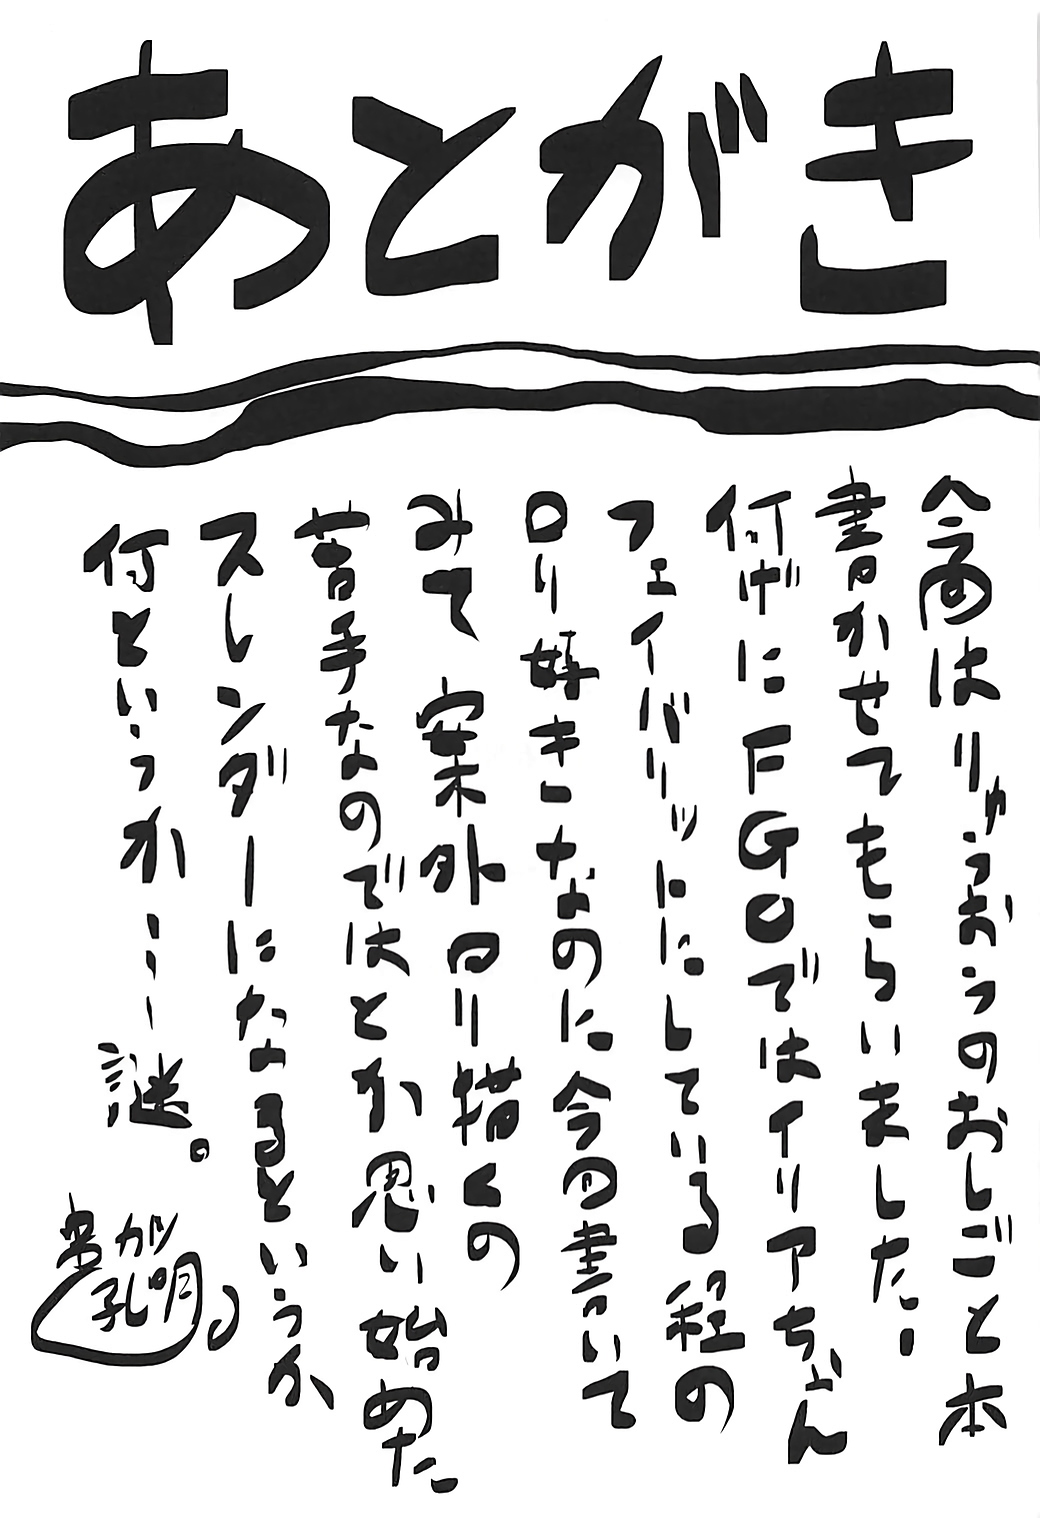 あとがき
今回はりゅうおうのおしごと本
書かせてもらいました!
何げにFGOではイリアちゃん
フェイバリットにしている程の
ロリ好きなのに今回書いて
みて案外ロリ描くの
苦手なのではとか思い始めた
スレンダーになるというか
何というか…謎。
ガッ
孔明